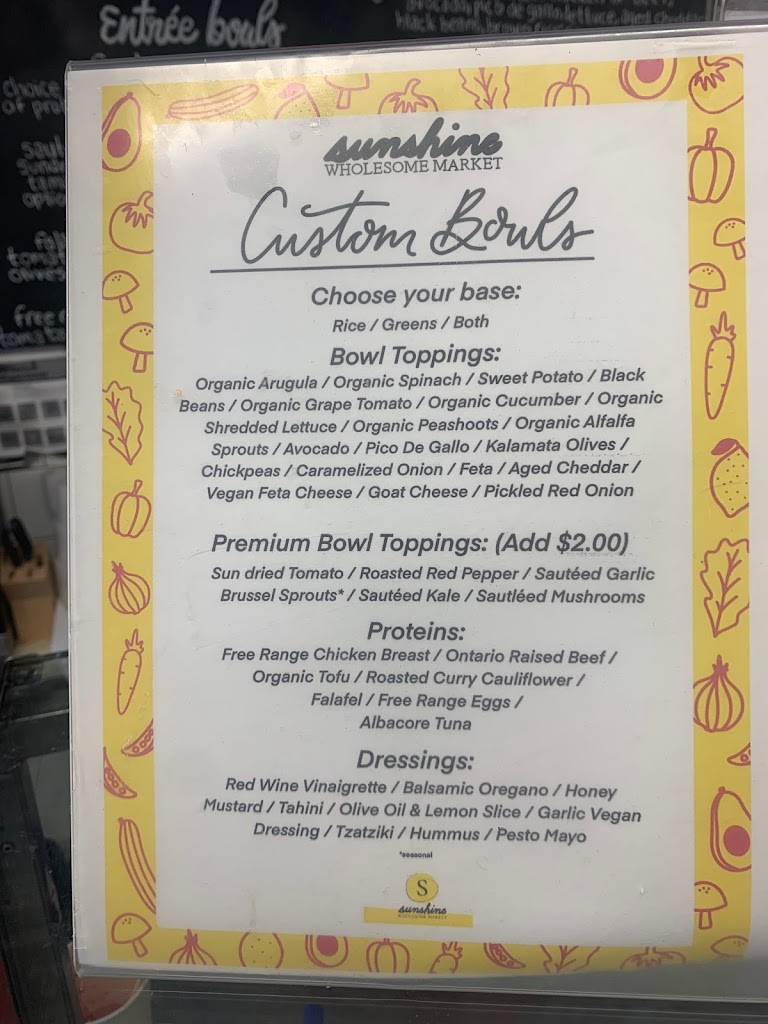 Entrée bouls
choice
of pro
free r
sunshine
WHOLESOME MARKET
Custom Bouls
Choose your base:
Rice / Greens / Both
Bowl Toppings:
Organic Arugula / Organic Spinach / Sweet Potato / Black
Beans / Organic Grape Tomato / Organic Cucumber / Organic
Shredded Lettuce / Organic Peashoots / Organic Alfalfa
Sprouts / Avocado / Pico De Gallo / Kalamata Olives /
Chickpeas / Caramelized Onion / Feta / Aged Cheddar /
Vegan Feta Cheese / Goat Cheese / Pickled Red Onion
Premium Bowl Toppings: (Add $2.00)
Sun dried Tomato / Roasted Red Pepper / Sautéed Garlic
Brussel Sprouts* / Sautéed Kale / Sautléed Mushrooms
Proteins:
Free Range Chicken Breast / Ontario Raised Beef /
Organic Tofu / Roasted Curry Cauliflower /
Falafel / Free Range Eggs /
Albacore Tuna
Dressings:
Red Wine Vinaigrette / Balsamic Oregano / Honey
Mustard / Tahini / Olive Oil & Lemon Slice / Garlic Vegan
Dressing / Tzatziki / Hummus / Pesto Mayo
*seasonal
S
sunshine
WHOLESOME MARKET